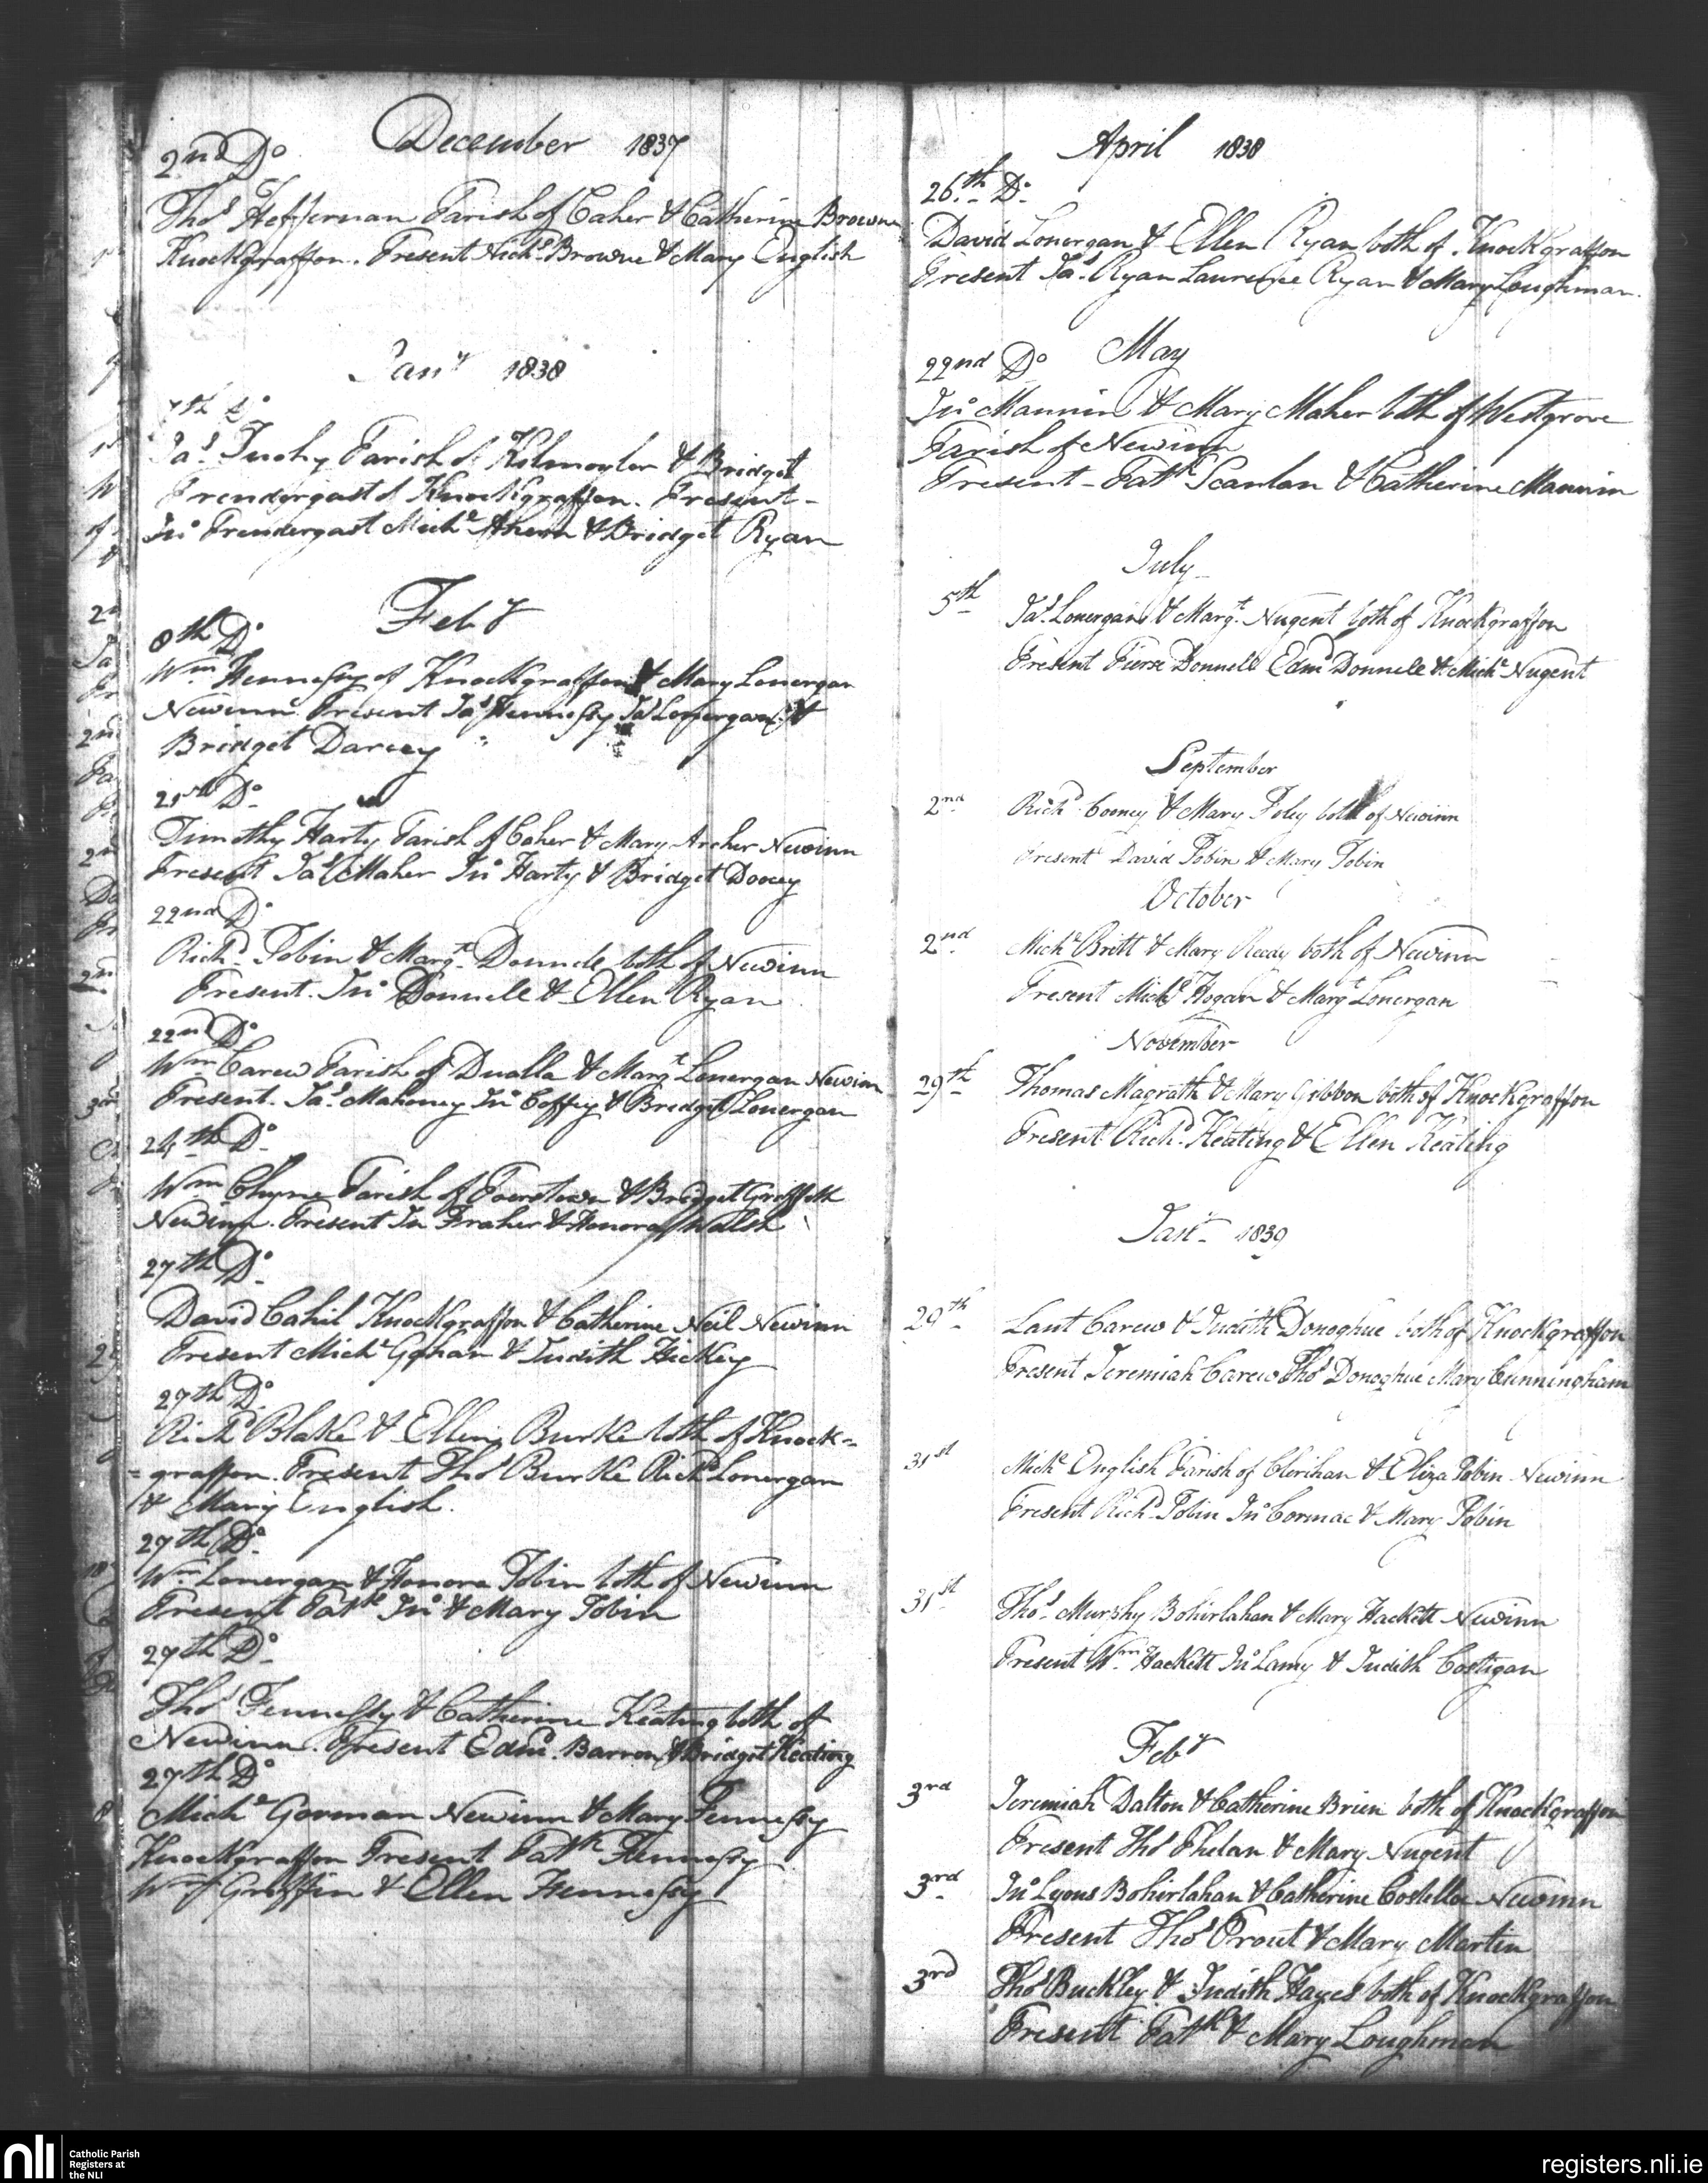 December 1837
2nd Do
Thos Heffernan Parish of Caher & Catherine Browne
Knockgraffon. Present Nichs Browne & Mary English
Jany 1838
7th Do
Jas Tuohy Parish of Kilmoyler & Bridget
Prendergast of Knockgraffon. Present -
Jno Prendergast Michl Ahern & Bridget Ryan
Feby
8th Do
Wm Hennessy of Knockgraffon & Mary Lonergan
Newinn. Present Jas Hennessy Jas Lonergan &
Bridget Darcey
21st Do
Timothy Harty Parish of Caher & Mary Archer Newinn
Present Jas Maher Jno Harty & Bridget Dooey
22nd Do
Richd Tobin & Margt Donnele both of Newinn
Present. Jno Donnele & Ellen Ryan
22nd Do
Wm Carew Parish of Dualla & Margt Lonergan Newinn
Present. Jas Mahoney Jno Coffey & Bridget Lonergan
24th Do
Wm Parish of & Bridget Griffith
Newinn. Present Jn Fraher & Honora Walsh
27th Do
David Cahil Knockgraffon & Catherine Neil Newinn
Present Michl Gahan & Judith Hickey
27th Do
Richd Blake & Ellen Burke both of Knock=
=graffon. Present Thos Burke Richd Lonergan
& Mary English.
27th Do
Wm Lonergan & Honora Tobin both of Newinn
Present Patk Jno & Mary Tobin
27th Do
Thos Fennessy & Catherine Keating both of
Newinn. Present Edmd Barron & Bridget Keating
27th Do
Michl Gorman Newinn & Mary Fennessy
Knockgraffon Present Patk Fennessy
Wm Griffin & Ellen Fennessy
April 1838
26th Do
David Lonergan & Ellen Ryan both of Knockgraffon
Present Jas Ryan Laurence Ryan & Mary Loughman.
May
22nd Do
Jno Mannin & Mary Maher both of Westgrove
Parish of Newinn
Present - Patk Scanlan & Catherine Mannin
July
5th Jas Lonergan & Margt Nugent both of Knockgraffon
Present Pierse Donnell Edmd Donnele & Michl Nugent
September
2nd Richd Cooney & Mary Foley both of Newinn
Present David Tobin & Mary Tobin
October
2nd Michl Britt & Mary Ready both of Newinn
Present Michl Hogan & Margt Lonergan
November
29th Thomas Magrath & Mary Gibbon both of Knockgraffon
Present Richd Keating & Ellen Keating
Jany 1839
29th Laut Carew & Judith Donoghue both of Knockgraffon
Present Jeremiah Carew Thos Donoghue Mary Cunningham
31st Michl English Parish of Clerihan & Eliza Tobin Newinn
Present Richd Tobin Jno Cormac & Mary Tobin
31st Thos Murphy Bohirlahan & Mary Hackett Newinn
Present Wm Hackett Jno Lamy & Judith Costigan
Feby
3rd Jeremiah Dalton & Catherine Brien both of Knockgraffon
Present Thos Phelan & Mary Nugent
3rd Jno Lyons Bohirlahan & Catherine Costelloe Newinn
Present Thos Prout & Mary Martin
3rd Thos Buckley & Judith Hayes both of Knockgraffon
Present Patk & Mary Loughman
nli
Catholic Parish
Registers at
the NLI
registers.nli.ie